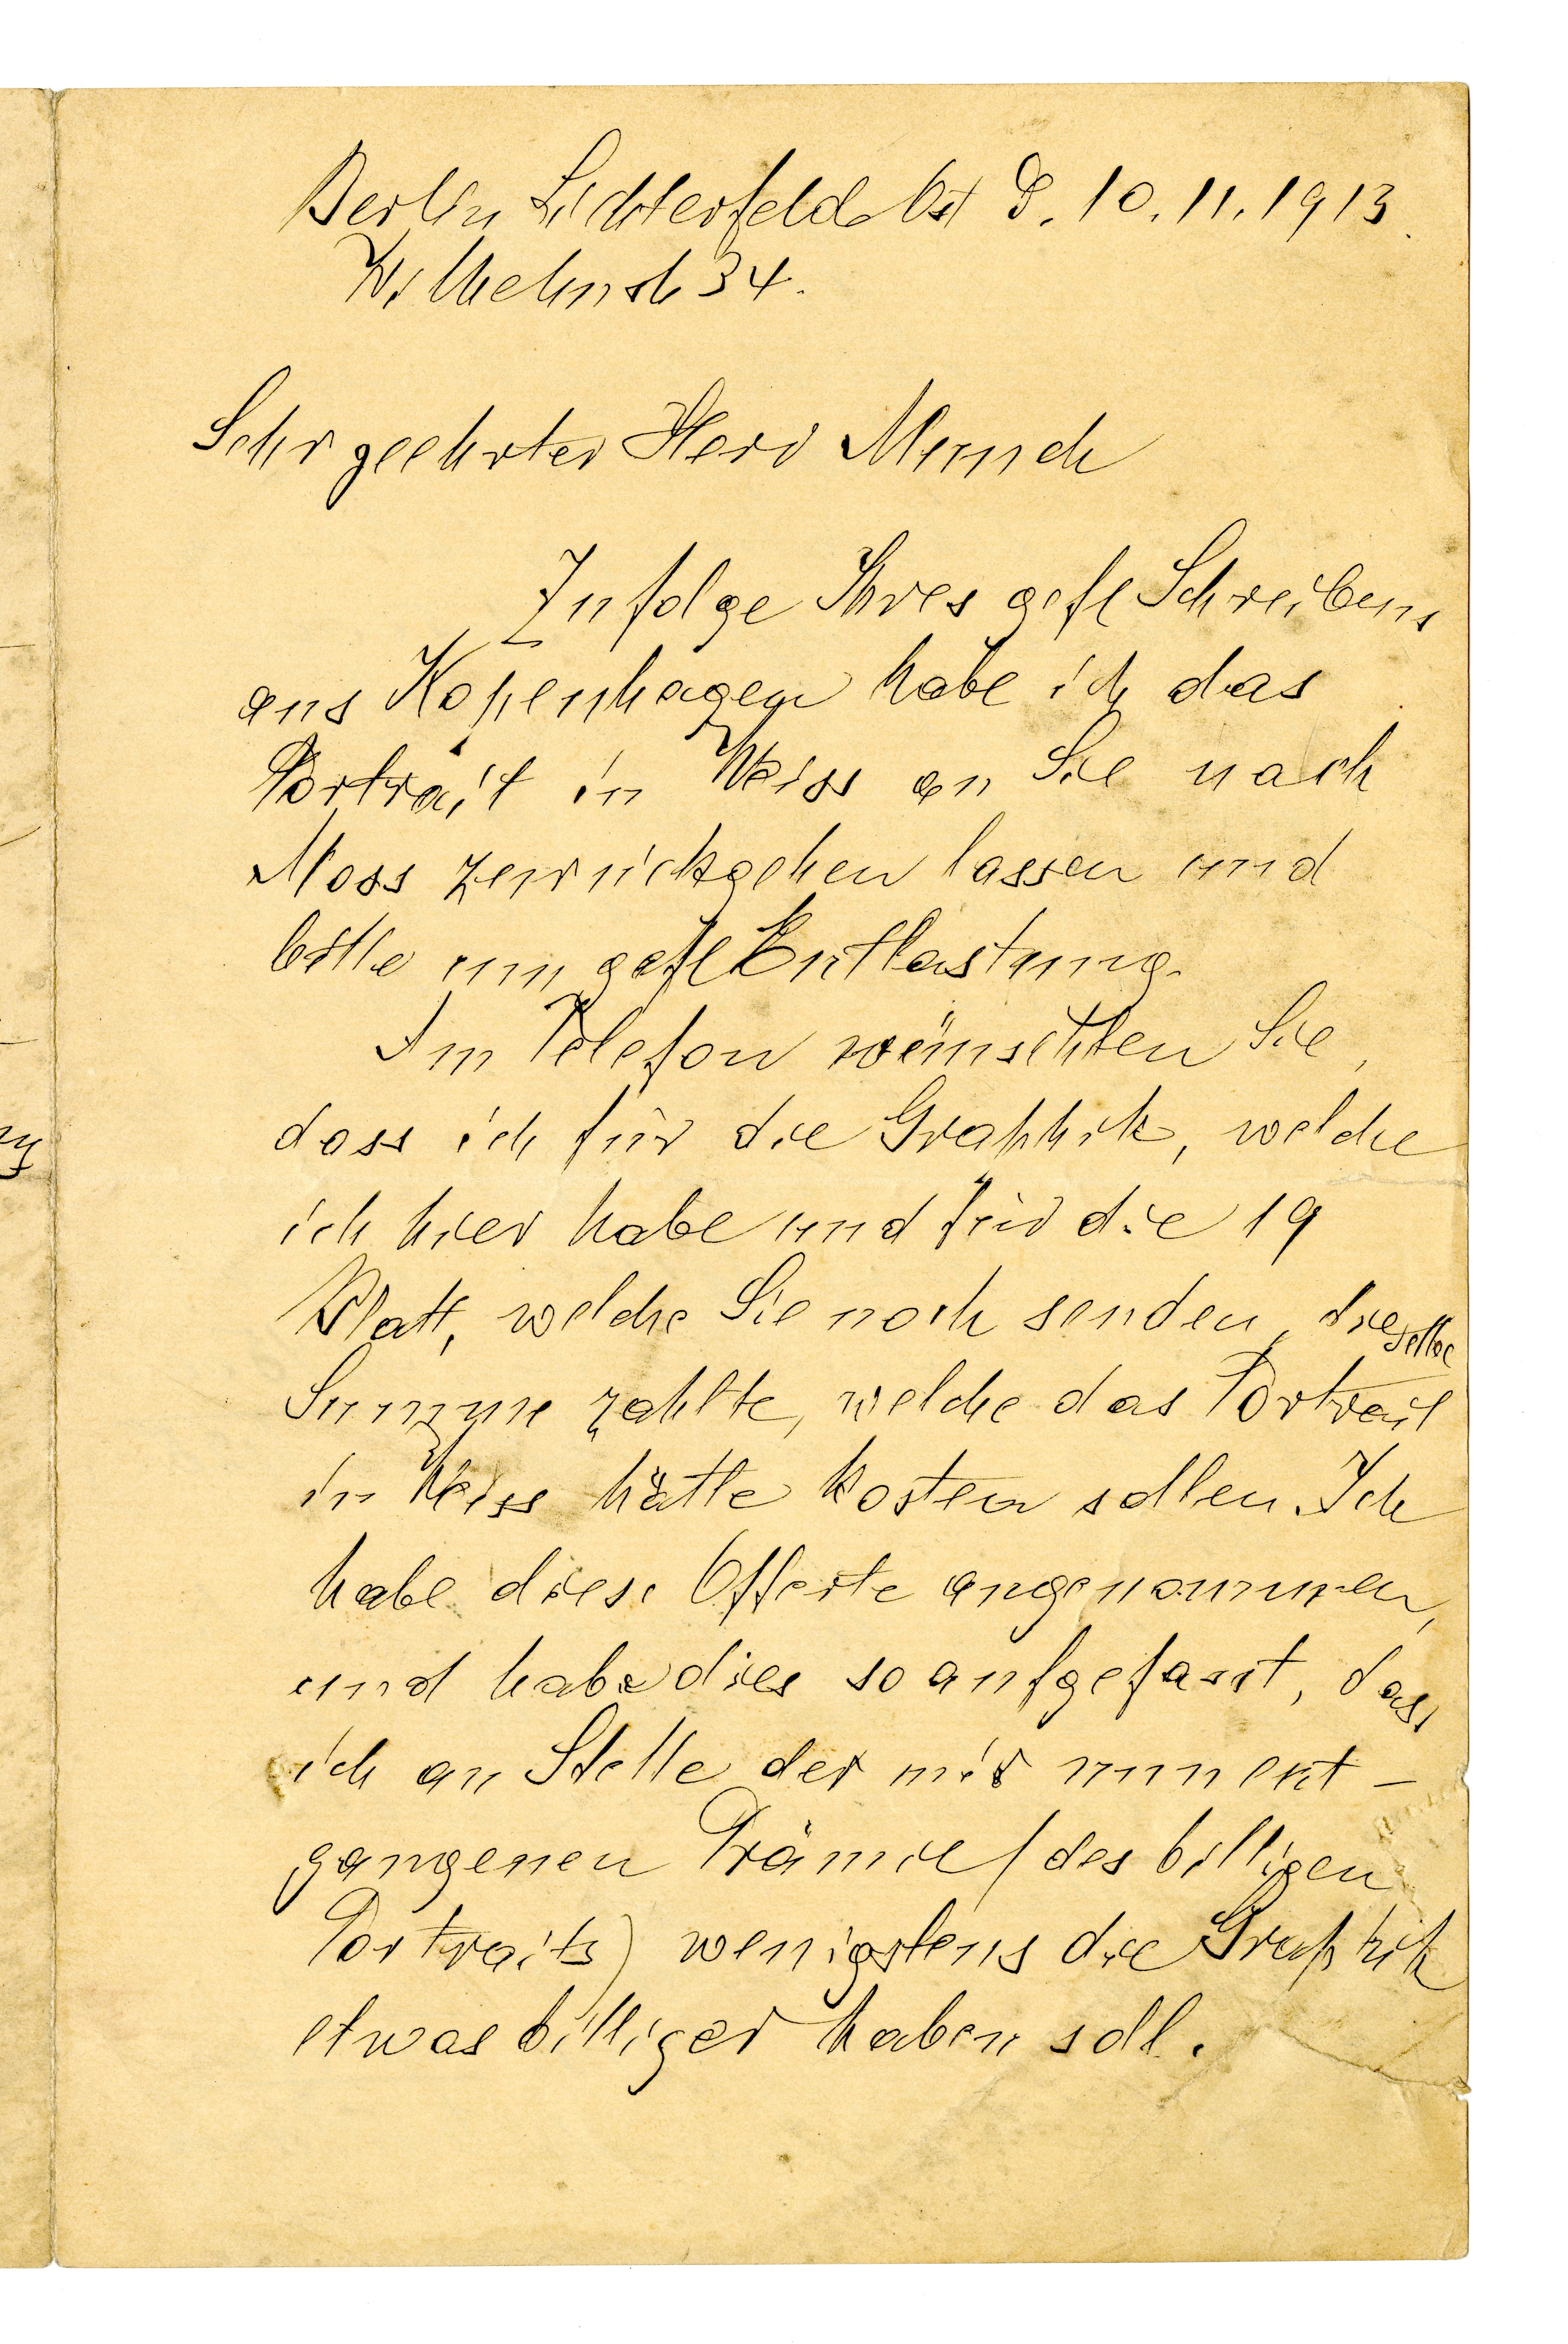 Berlin Lichterfelde Ost D. 10.11.1913.
Wilhelmstr 34.
Sehr geehrter Herr Munch
Infolge Ihres gefl Schreibens
aus Kopenhagen habe ich das
Porträit in Weiss an Sie nach
Moss zurückgehen lassen und
bitte um gefl Entlastung.
Im Telefon wünschten Sie,
dass ich für die Graphik, welche
ich hier habe und für die 19
Blatt, welche Sie noch senden, dieselbe
Summe zahlte, welche das Portrait
in Weiss hätte kosten sollen. Ich
habe diese Offerte angenommen,
und habe dies so aufgefasst, dass
ich an Stelle der mir nunent-
gangenen Prämie (des billigen
Portraits) wenigstens die Graphik
etwas billiger haben soll.